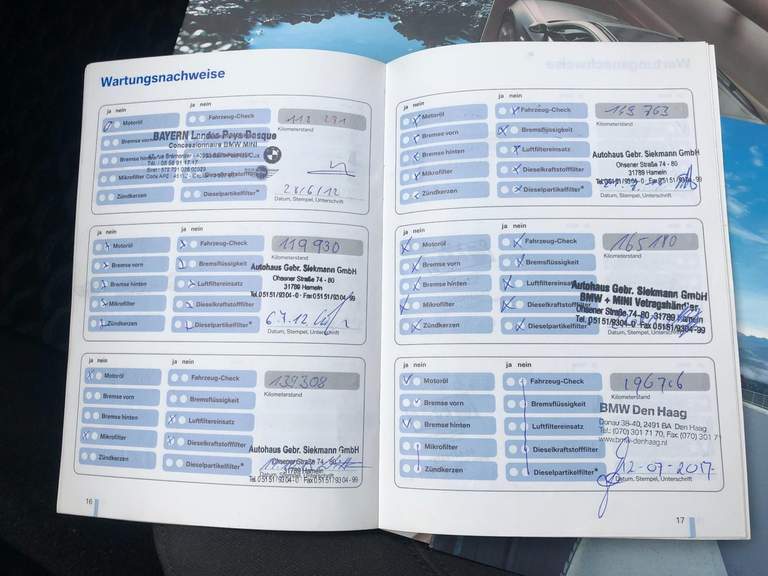 Wartungsnachweise
ja nein ja nein
Motoröl Fahrzeug-Check 118 291
Kilometerstand
BAYERN Landes Pays Basque
Concessionnaire BMW MINI
Bremse vorn
Bremse hinten
Mikrofilter
28/6/12
Zündkerzen Dieselpartikelfilter*
Datum, Stempel, Unterschrift
ja nein ja nein
Motoröl Fahrzeug-Check 119 930
Kilometerstand
Bremse vorn Bremsflüssigkeit
Autohaus Gebr. Siekmann GmbH
Ohsener Straße 74 - 80
31789 Hameln
Tel. 05151/9304-0 · Fax 05151/9304-99
Bremse hinten Luftfiltereinsatz
Mikrofilter Dieselkraftstofffilter
6.7.12
Zündkerzen Dieselpartikelfilter*
Datum, Stempel, Unterschrift
ja nein ja nein
Motoröl Fahrzeug-Check 139308
Kilometerstand
Bremse vorn Bremsflüssigkeit
Bremse hinten Luftfiltereinsatz
Mikrofilter Dieselkraftstofffilter
Autohaus Gebr. Siekmann GmbH
Ohsener Straße 74 - 80
31789 Hameln
Tel. 05151/9304-0 Fax 05151/9304-99
Zündkerzen Dieselpartikelfilter*
16
ja nein ja nein
Motoröl Fahrzeug-Check 149763
Kilometerstand
Bremse vorn Bremsflüssigkeit
Bremse hinten Luftfiltereinsatz
Autohaus Gebr. Siekmann GmbH
Ohsener Straße 74 - 80
31789 Hameln
Mikrofilter Dieselkraftstofffilter
Zündkerzen Dieselpartikelfilter*
Datum, Stempel, Unterschrift
ja nein ja nein
Motoröl Fahrzeug-Check 165180
Kilometerstand
Bremse vorn Bremsflüssigkeit
Bremse hinten Luftfiltereinsatz
Autohaus Gebr. Siekmann GmbH
BMW + MINI Vetragshändler
Ohsener Straße 74-80 31789 Hameln
Tel. 05151/9304-0 Fax 05151/9304-99
Mikrofilter Dieselkraftstofffilter
Zündkerzen Dieselpartikelfilter*
Datum, Stempel, Unterschrift
ja nein ja nein
Motoröl Fahrzeug-Check 196706
Kilometerstand
Bremse vorn Bremsflüssigkeit
BMW Den Haag
Donau 38-40, 2491 BA Den Haag
Tel: (070) 301 71 70, Fax: (070) 301 7
www.bmw-denhaag.nl
Bremse hinten Luftfiltereinsatz
Mikrofilter Dieselkraftstofffilter
12-07-2017
Zündkerzen Dieselpartikelfilter*
Datum, Stempel, Unterschrift
17